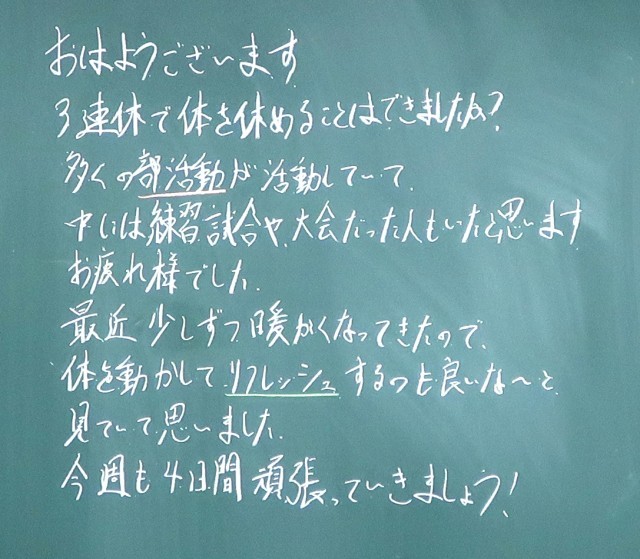 おはようございます
3連休で体を休めることはできましたか?
多くの部活動が活動していて、
中には練習試合や、大会だった人もいたと思います
お疲れ様でした。
最近少しずつ暖かくなってきたので、
体を動かしてリフレッシュするのも良いな〜と、
見ていて思いました。
今週も4日間頑張っていきましょう!